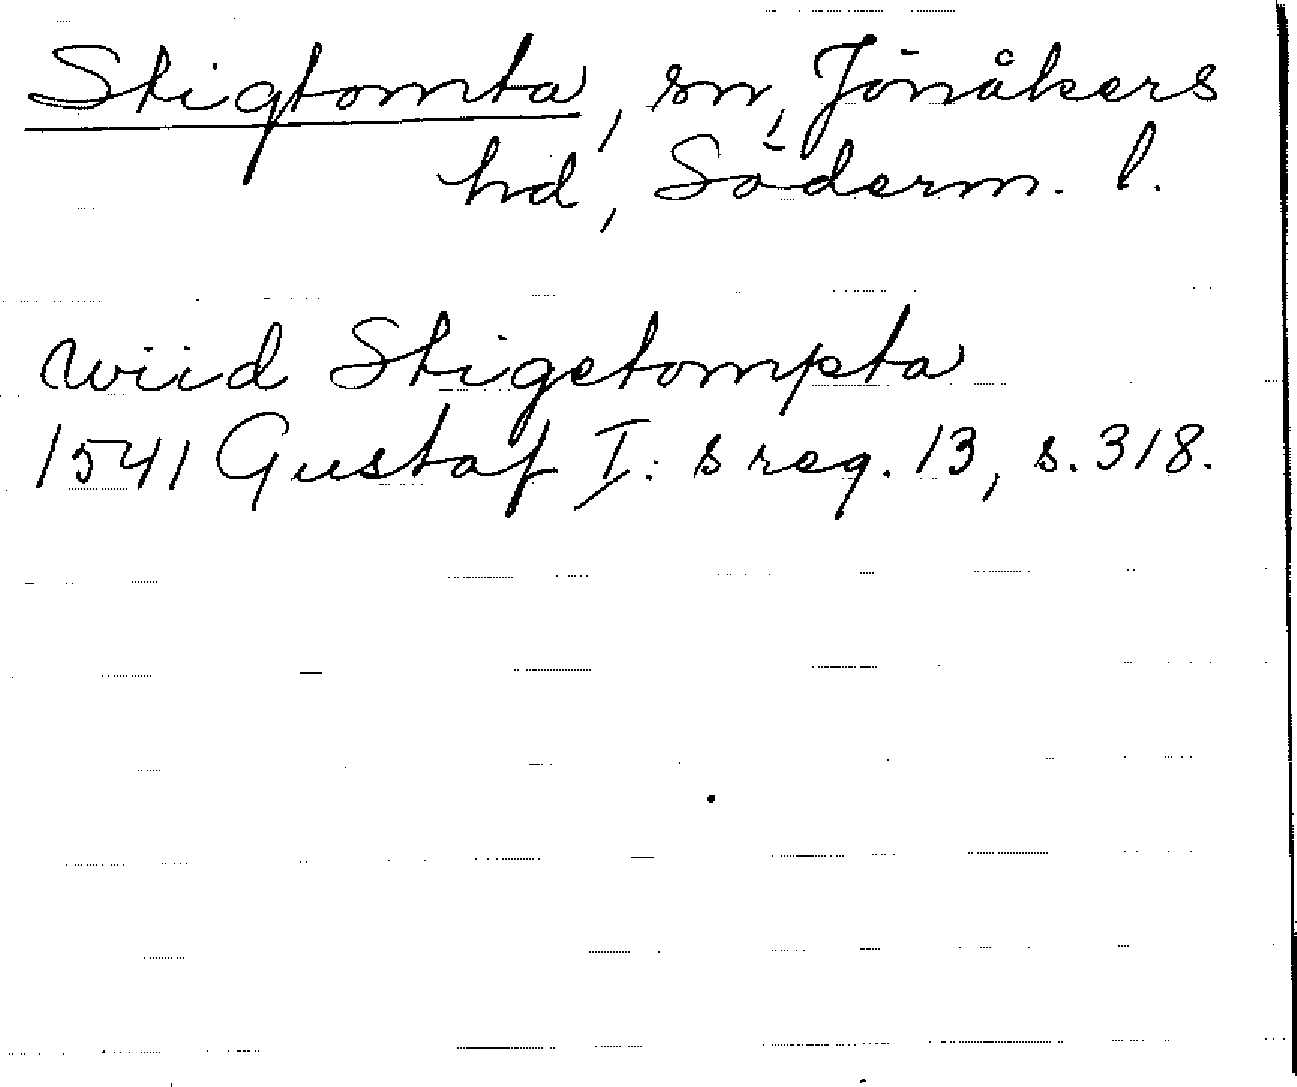 Stigtomta, sn, Jönåkers
hd, Söderm. l.
wiid Stigetompta
1541 Gustaf I:s reg. 13, s. 318.